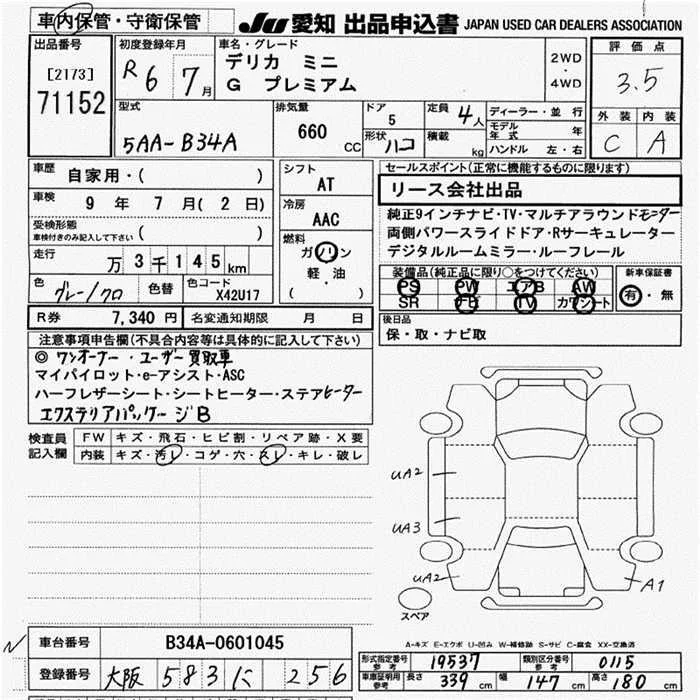 車内保管・守衛保管
JU 愛知 出品申込書 JAPAN USED CAR DEALERS ASSOCIATION
出品番号
[2173]
71152
初度登録年月
R 6 7月
車名・グレード
デリカ ミニ
G プレミアム
2WD
・
4WD
評価点
3.5
外装 内装
C A
型式
5AA-B34A
排気量
660 cc
ドア
5
形状 ハコ
定員 4人
積載 kg
ディーラー・並行
モデル年式 年
ハンドル 左・右
車歴 自家用・( )
車検 9年 7月( 2日)
受検形態
車検付きのみ記入して下さい ( )
走行 万3千145km
色 グレー/クロ 色替 色コード X42U17
シフト
AT
冷房
AAC
燃料
ガソリン
軽・油
( )
セールスポイント(正常に機能するものに限ります)
リース会社出品
純正9インチナビ・TV・マルチアラウンドモニター
両側パワースライドドア・Rサーキュレーター
デジタルルームミラー・ルーフレール
装備品(純正品に限り○をつけてください) 新車保証書
PS PW エアB AW
SR ナビ TV カワシート
有・無
後日品
保・取・ナビ取
R券 7,340円 名変通知期限 月 日
注意事項申告欄(不具合内容等は具体的に記入して下さい)
◎ワンオーナー・ユーザー買取車
マイパイロット・e-アシスト・ASC
ハーフレザーシート・シートヒーター・ステアヒーター
エクステリアパッケージB
検査員記入欄
FW キズ・飛石・ヒビ割・リペア跡・X要
内装 キズ・汚レ・コゲ・穴・スレ・キレ・破レ
UA2
UA3
UA2
A1
スペア
A-キズ E-エクボ U-凹み W-補修跡 S-サビ C-腐食 XX-交換済
車台番号 B34A-0601045
登録番号 大阪 583 に 256
型式指定番号 参考 19537 類別区分番号 参考 0115
車庫証明用 参考 長さ 339cm 幅 147cm 高さ 180cm